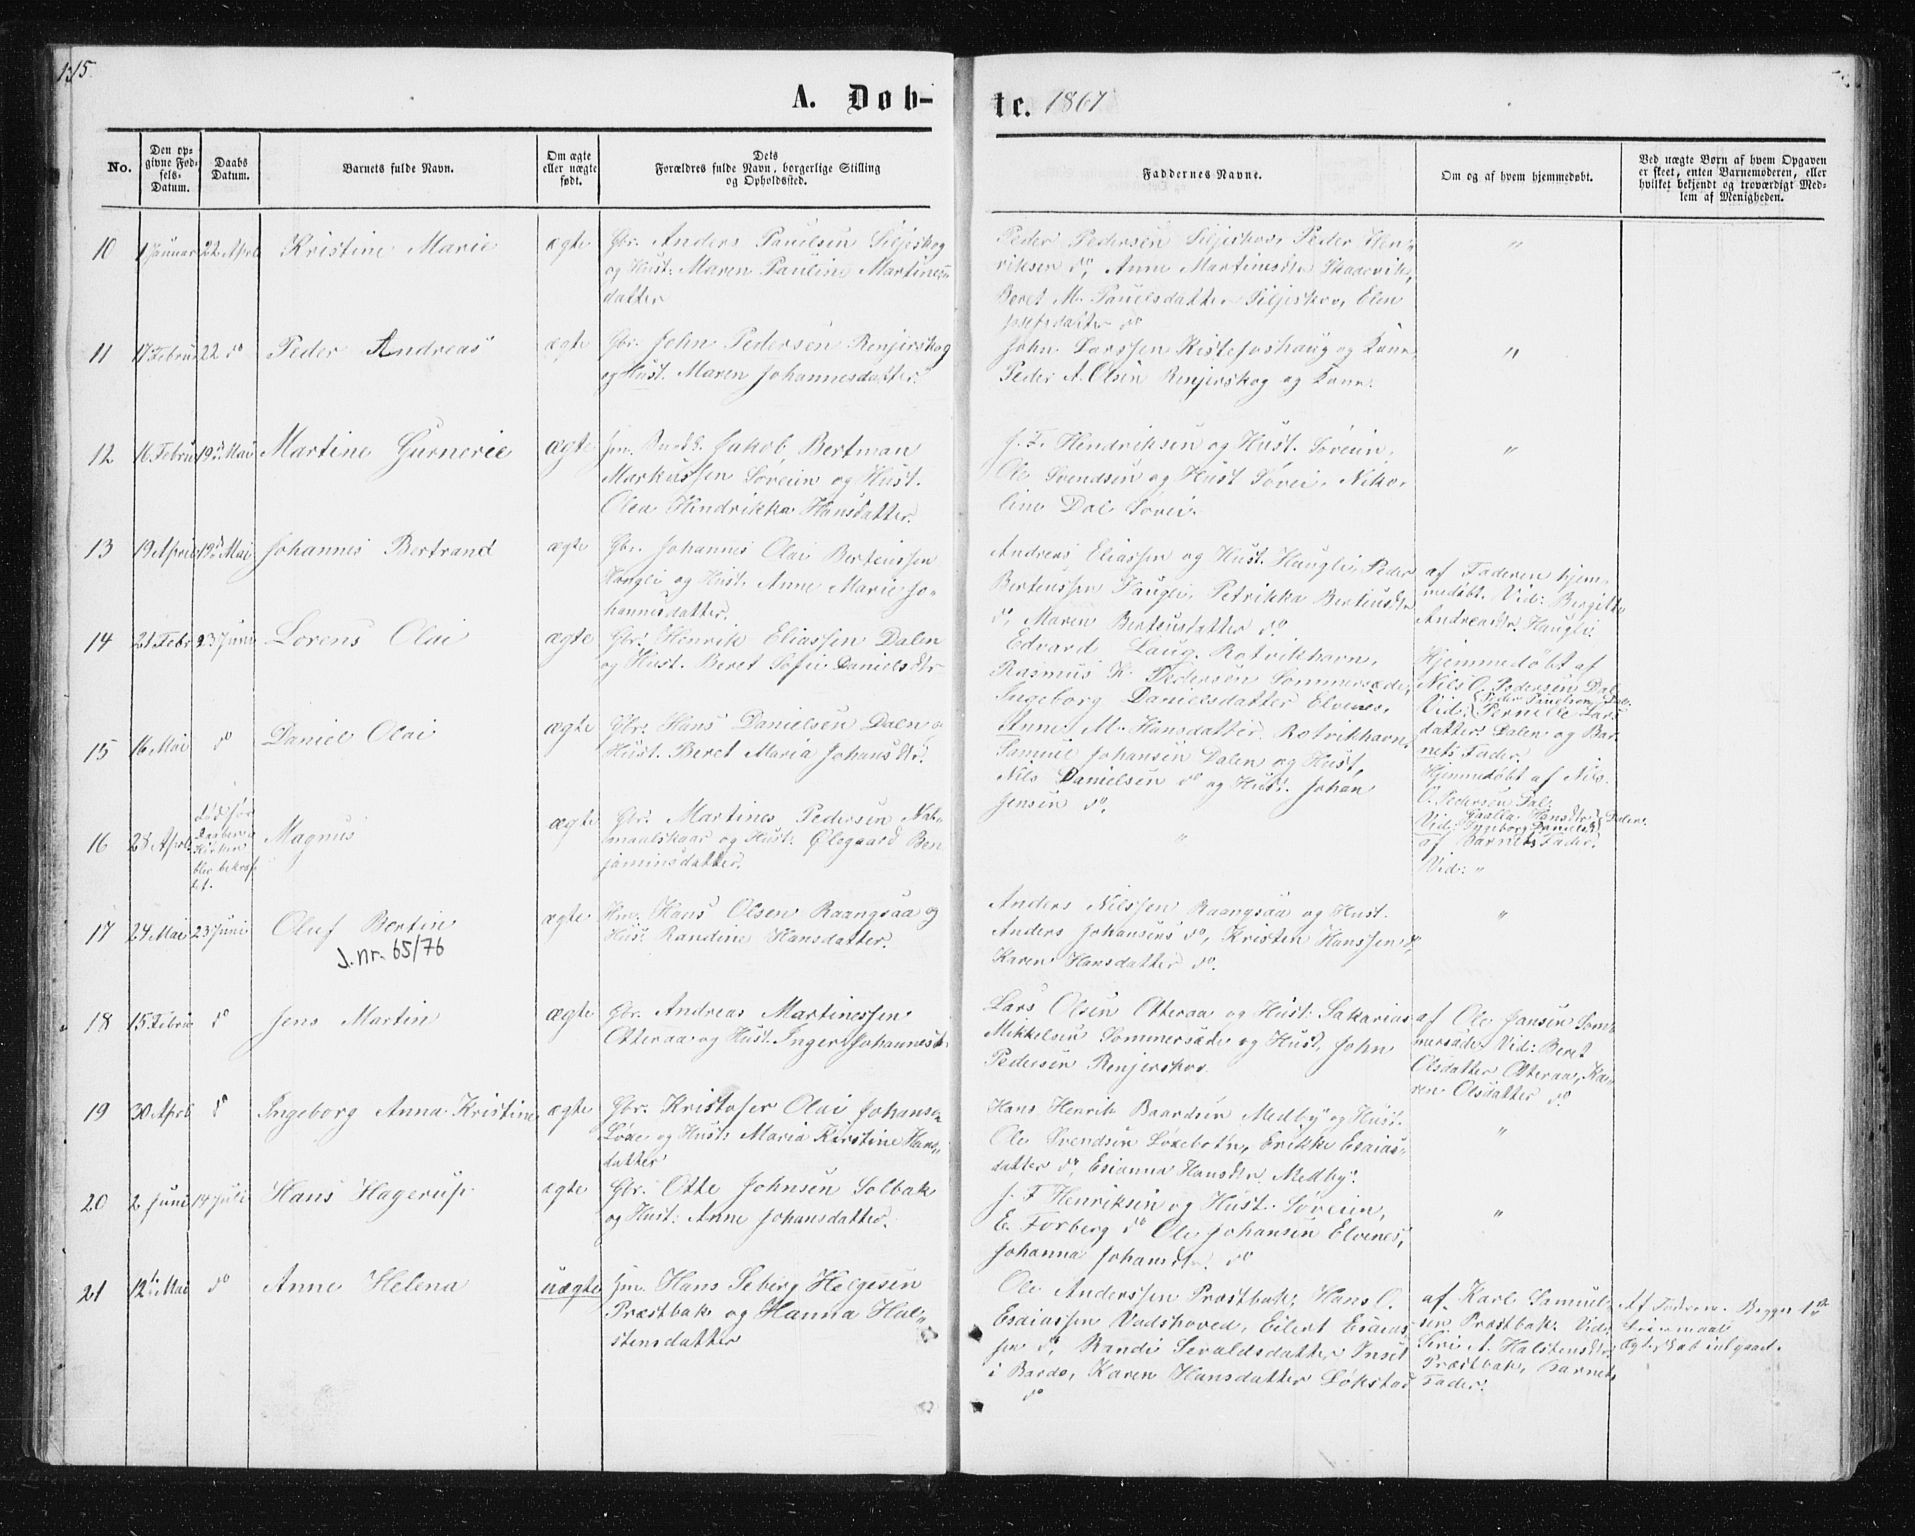 175.
A. Døb-
te. 1867
No.
Den op-
givne Fød-
sels-
Datum.
Daabs
Datum.
Barnets fulde Navn.
Om ægte
eller uægte
født.
Dets
Forældres fulde Navn, borgerlige Stilling
og Opholdssted.
Faddernes Navne.
Om og af hvem hjemmedøbt.
Ved uægte Børn af hvem Opgaven
er skeet, enten Barnemoderen, eller
hvilket bekjendt og troværdigt Med-
lem af Menigheden.
10 1 Januar 22 April Kristine Marie ægte Gbr. Anders Paulsen Siljeskog
og Hust: Maren Pauline Martines-
datter
Peder Pedersen Siljeskov, Peder Hen-
riksen do, Anne Martinesdtr Skaarvik,
Beret M. Paulsdatter Siljeskov, Elen
Josefsdatter do
"
11 17 Febru 22 do Peder Andreas ægte Gbr. John Pedersen Renjerskog
og Hust. Maren Johannesdatter.
John Larssen Kistefoshaug og Kone,
Peder A. Olsen Renjerskog og Kone.
"
12 16 Febru 19de Mai Martine Gurnerie ægte Jakob Bertman
Markussen Søreim og Hust.
Olea Hendrikka Hansdatter.
J. F. Hendriksen og Hust. Søreim,
Ole Svendsen og Hust Søvei, Niko-
line Dal Søvei.
"
13 19 April 19de Mai Johannes Bertrand ægte Gbr. Johannes Olai Berteussen
Haugli og Hust. Anne Marie Jo-
hannesdatter.
Andreas Eliassen og Hust. Haugli, Peder
Berteussen Haugli, Petrikka Berteusdtr
do, Maren Berteusdatter do.
af Faderen hjem-
medøbt. Vid: Bergitte
Andreasdtr. Haugli.
14 21 Febr 23 Juni Lorens Olai ægte Gbr. Henrik Eliassen Dalen
og Hust. Beret Sofie Danielsdtr
Edvard Laug. Rotvikhavn,
Rasmus K. Pedersen Sommersæde,
Ingeborg Danielsdatter Elvenes,
Anne M. Hansdatter Rotvikhavn.
Hjemmedøbt af
Nils O. Pedersen Dal
Vid: Peder Paulsen Dal,
Pernille Lars-
datter Dalen og Bar-
nets Fader.
15 16 Mai do Daniel Olai ægte Gbr. Hans Danielsen Dalen og
Hust. Beret Maria Johansdtr.
Samuel Johansen Dalen og Hust,
Nils Danielsen do og Hust. Johan
Jensen do.
Hjemmedøbt af Nils
O. Pedersen Dal.
Vid: Hansdtr Dalen
Ingeborg Danielsd
16 28 April Død før
Daaben i
Kirken
blev bekræf-
tet.
Magnus ægte Gbr. Martines Pedersen Nab-
maalskaar og Hust: Ølegaard Ben-
jaminsdatter.
"
af Barnets Fader.
Vid: "
17 24 Mai 23 Juni Oluf Bertin ægte Hm. Hans Olsen Raangsaa og
Hust. Randine Hansdatter.
J.nr. 65/76
Anders Nilssen Raangsaa og Hust.
Anders Johansens do, Kristen Hanssen do,
Karen Hansdatter do.
"
18 15 Febru do Jens Martin ægte Gbr. Andreas Martinessen
Otteraa og Hust. Inger Johannesd.
Lars Olsen Otteraa og Hust. Sakarias
Mikkelsen Sommersæde og Hust, John
Pedersen Renjerskov.
af Ole Jansen Som-
mersæde. Vid: Beret
Olsdatter Otteraa, Ka-
ren Olsdatter do
19 30 April do Ingeborg Anna Kristine ægte Gbr. Kristofer Olai Johanse
Løxe og Hust: Maria Kirstine Hans-
datter
Hans Henrik Baardsen Medby og Hust.
Ole Svendsen Løxebotn, Erikke Esaias-
datter do, Esianna Hansdtr. Medby.
"
20 2 Juni 14 Juli Hans Hagerup ægte Gbr. Otte Johnsen Solbak
og Hust: Anne Johansdatter.
J. F Henriksen og Hust. Søreim,
E. Forberg do Ole Johansen Elvenes,
Johanna Johansdtr. do
"
21 12te Mai do Anne Helena uægte Hans Seberg Helgesen
Præstbak og Hanna Hal-
stensdatter
Ole Anderssen Præstbak, Hans O.
Esaiassen Vadshoved, Eilert Esaias-
sen do, Randi Sevaldsdatter Inset
i Bardo, Karen Hansdatter Løkstad
do
af Karl Samuel-
sen Præstbak. Vid:
Siri A. Halstensdtr.
Præstbak, Barnets
Fader.
Af Faderen. Begges 1ste
Leiermaal
Ægteskab indgaaet.